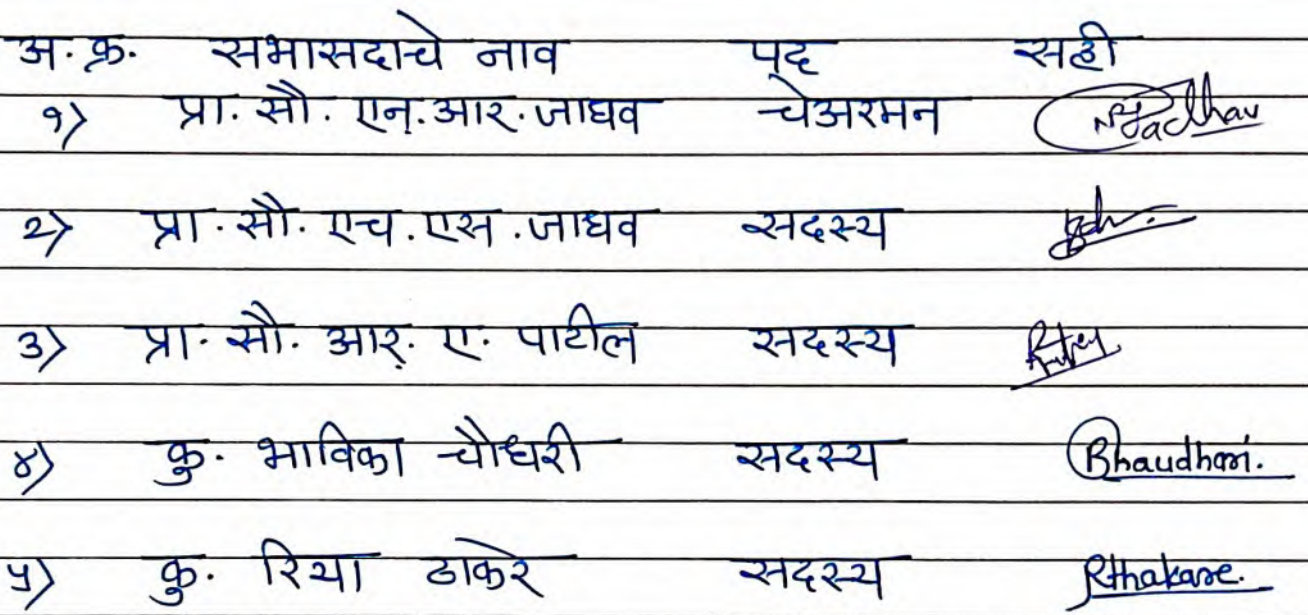 अ. क्र. सभासदाचे नाव पद सही
१) प्रा. सौ. एन. आर. जाधव चेअरमन NRJadhav
२) प्रा. सौ. एच. एस. जाधव सदस्य
३) प्रा. सौ. आर. ए. पाटील सदस्य
४) कु. भाविका चौधरी सदस्य Bhaudhari.
५) कु. रिया ठाकरे सदस्य Rthakare.